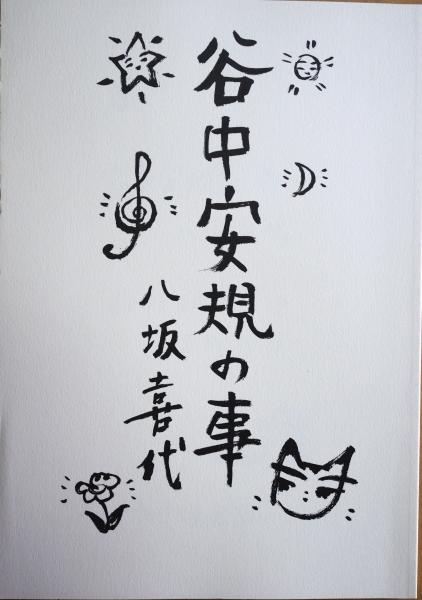 谷中安規の事
八坂喜代